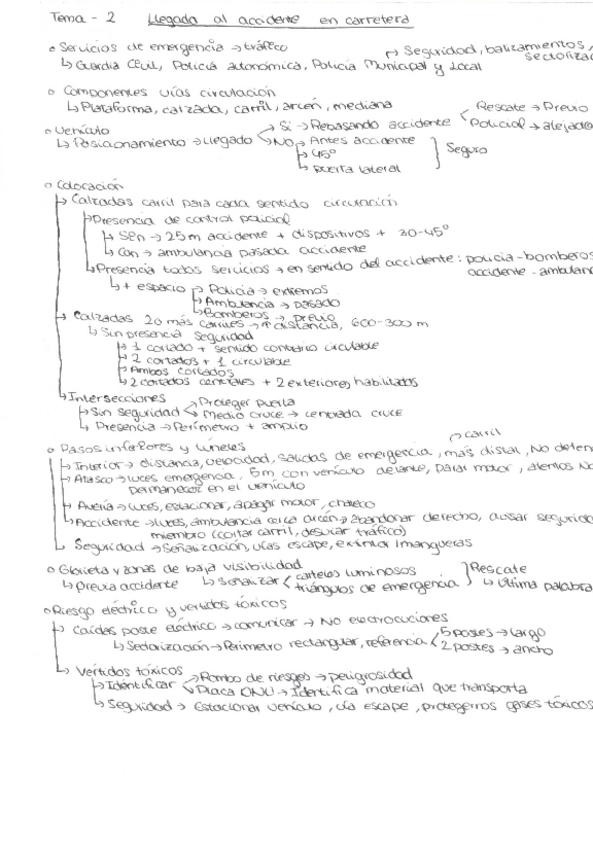 Tema - 2 Llegada al accidente en carretera
Servicios de emergencia → tráfico
Seguridad, balizamientos,
sectoriza
Guardia Civil, Policía autonómica, Policía Municipal y Local
Componentes vías circulación
Plataforma, calzada, carril, arcén, mediana
Rescate → Previo
Vehículo
Si → Rebasando accidente
Policial → alejado
Posicionamiento → llegado
No → Antes accidente
45º
Seguro
puerta lateral
Colocación
Calzadas carril para cada sentido circulación
Presencia de control policial
Sen → 25m accidente + dispositivos + 30-45º
Con → ambulancia pasada accidente
Presencia todos servicios → en sentido del accidente: policia-bomberos
accidente-ambulan
+ espacio → Policía → extremos
Ambulancia → pasado
Bomberos → previo
Calzadas 2 o más carriles → ↑ distancia, 600-300 m
Sin presencia seguridad
1 cortado + sentido contrario circulable
2 cortados + 1 circulable
Ambos cortados
2 cortados centrales + 2 exteriores habilitados
Intersecciones
Proteger puerta
Sin seguridad
Medio cruce → centrada cruce
Presencia → Perímetro + amplio
Pasos inferiores y túneles
carril
Interior → distancia, velocidad, salidas de emergencia, más distal, No deten
Atasco → luces emergencia, 5m con vehículo delante, parar motor, atentos No
permanecer en el vehículo
Avería → luces, estacionar, apagar motor, chaleco
Accidente → luces, ambulancia cerca arcén → abandonar derecho, avisar segurid
miembro (cortar carril, desviar tráfico)
Seguridad → Señalización, vías escape, extintor/mangueras
Glorieta y zonas de baja visibilidad
Rescate
Previa accidente
Señalizar
carteles luminosos
triángulos de emergencia
Última palabra
Riesgo eléctrico y vertidos tóxicos
Caídas poste eléctrico → comunicar → No electrocuciones
Sectorización → Perímetro rectangular, referencia
5 postes → largo
2 postes → ancho
Vertidos tóxicos
Identificar
Rombo de riesgos → peligrosidad
Placa ONU → Identifica material que transporta
Seguridad → Estacionar vehículo, vía escape, protegernos gases tóxicos